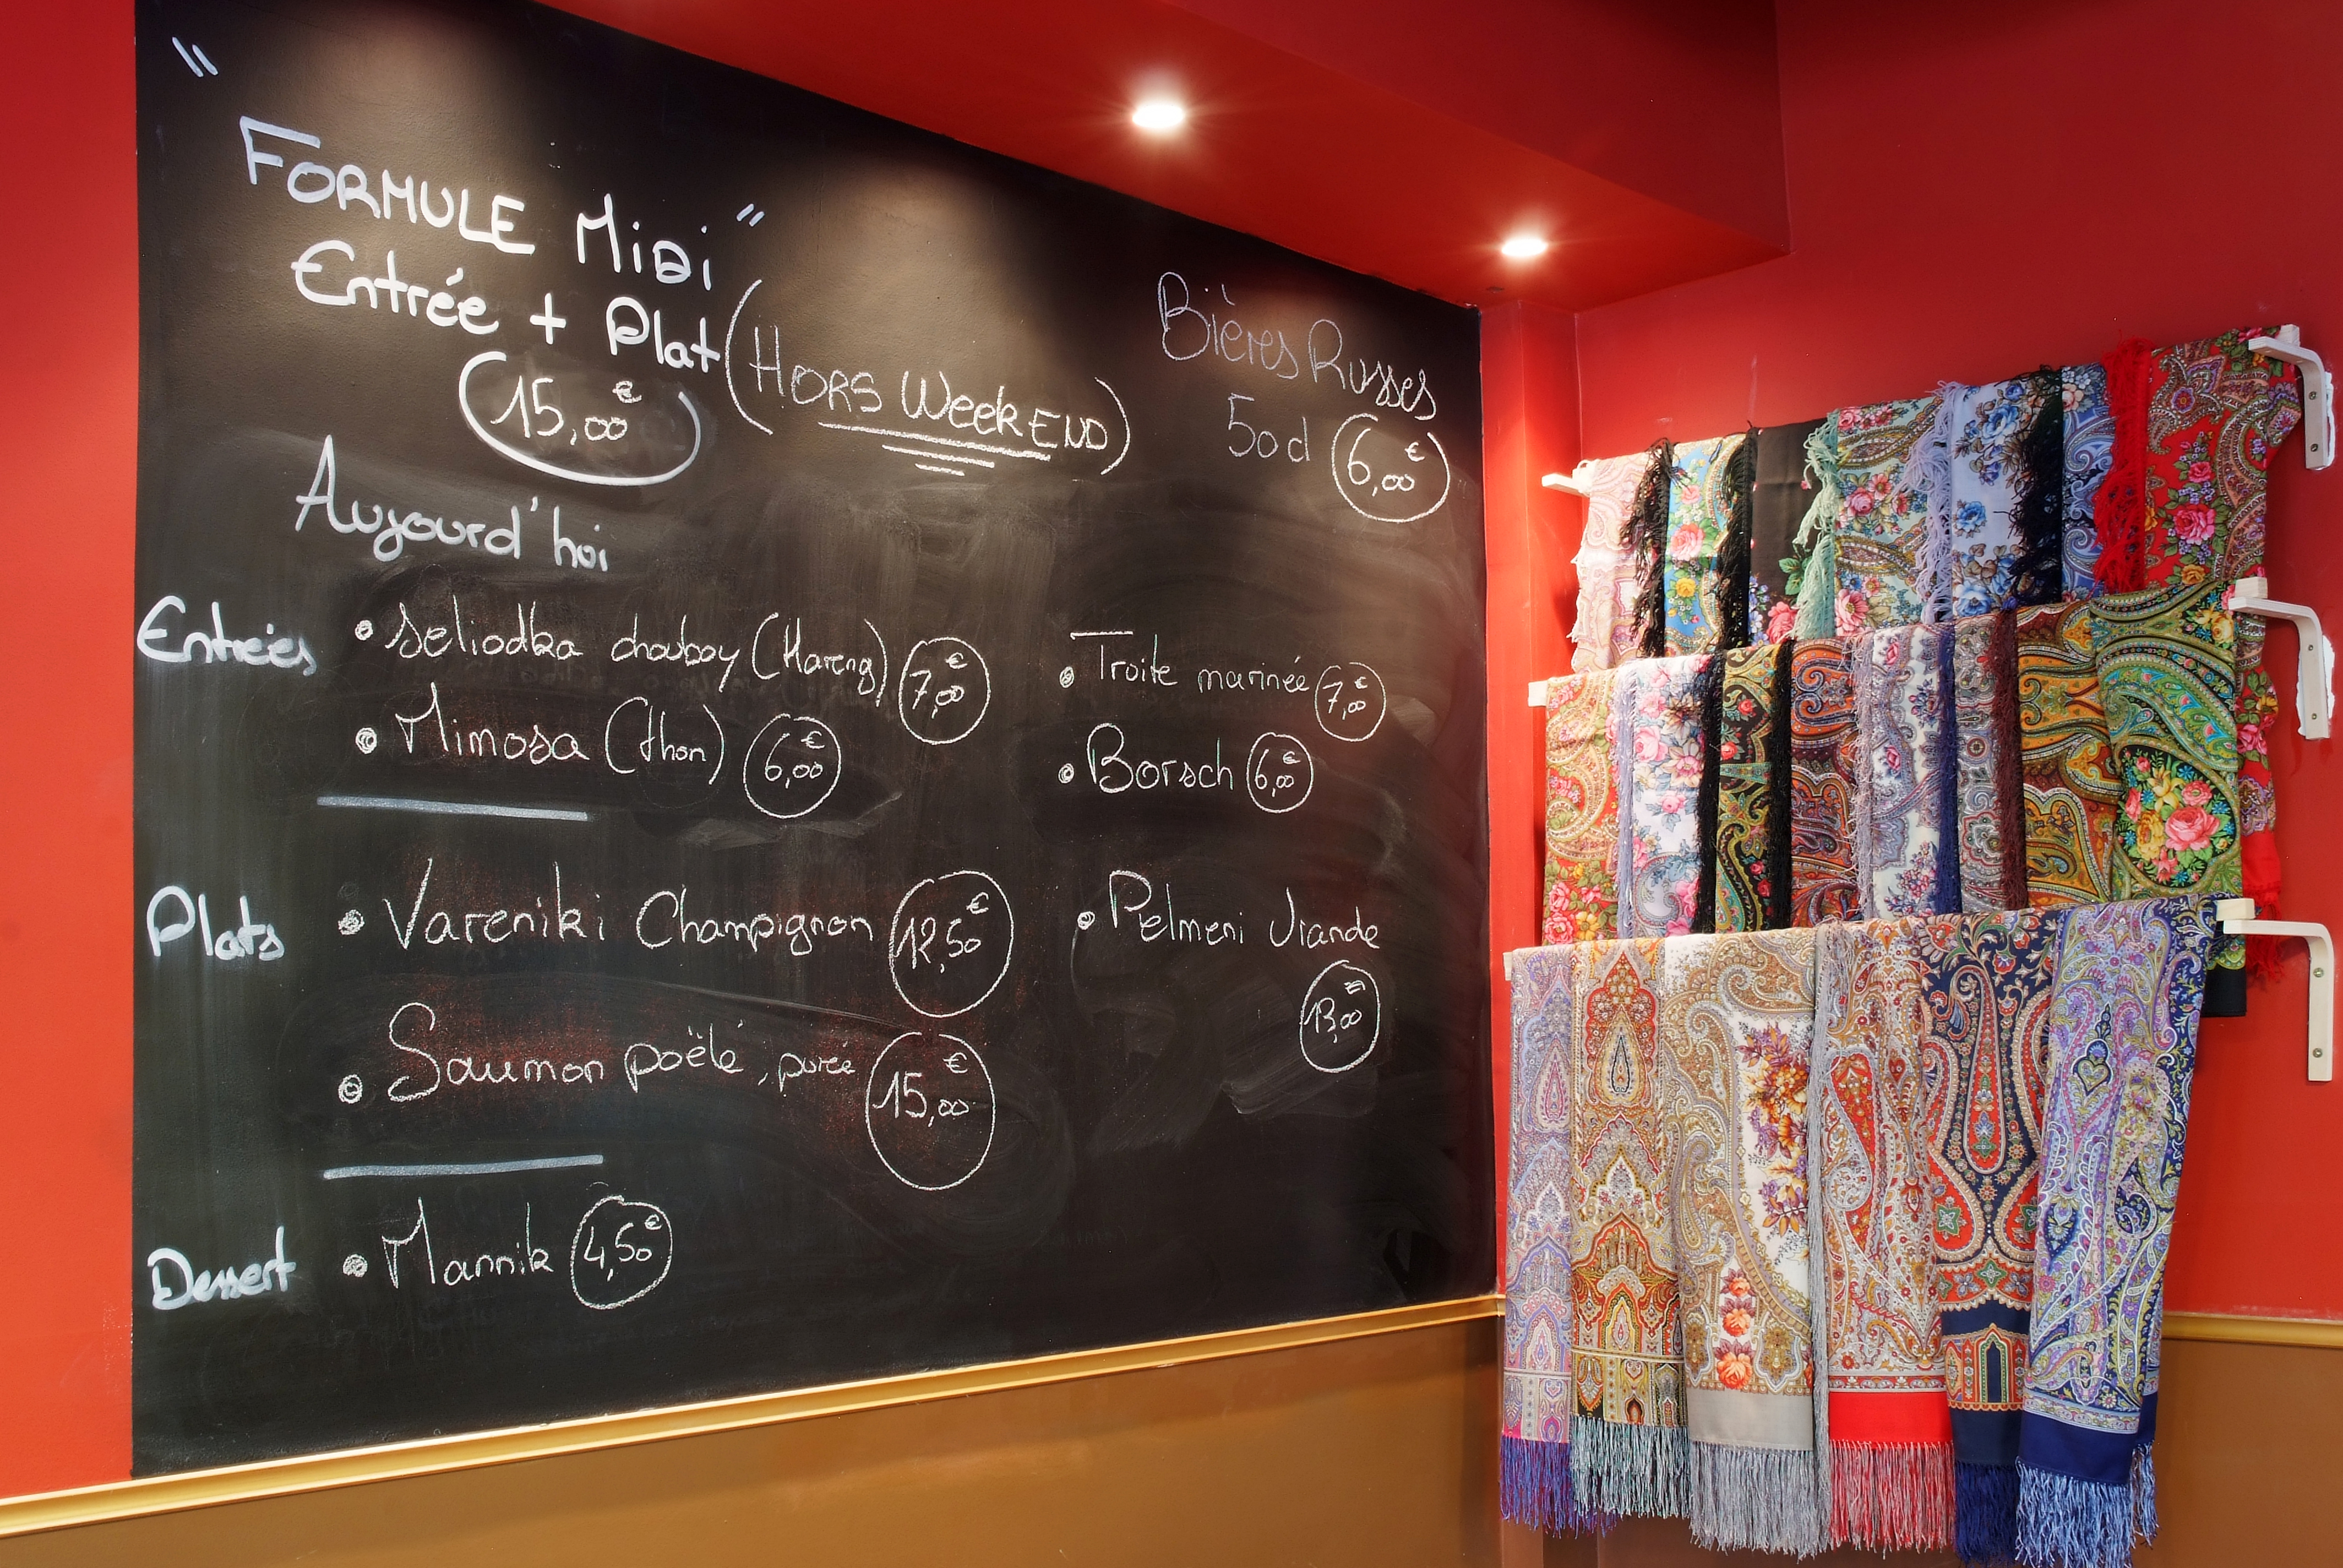 "FORMULE MiDi"
Entrée + Plat (HORS WEEKEND)
15,00€
Bières Russes
50 d 6,00€
Aujourd'hoi
Entrées • Seliodka chouboy (Hareng) 7,00€
• Mimosa (thon) 6,00€
• Troite marinée 7,00€
• Borsch 6,00€
Plats • Vareniki Champignon 12,50€
• Saumon poëlé, purée 15,00€
• Pelmeni Viande
13,00€
Dessert • Mannik 4,50€